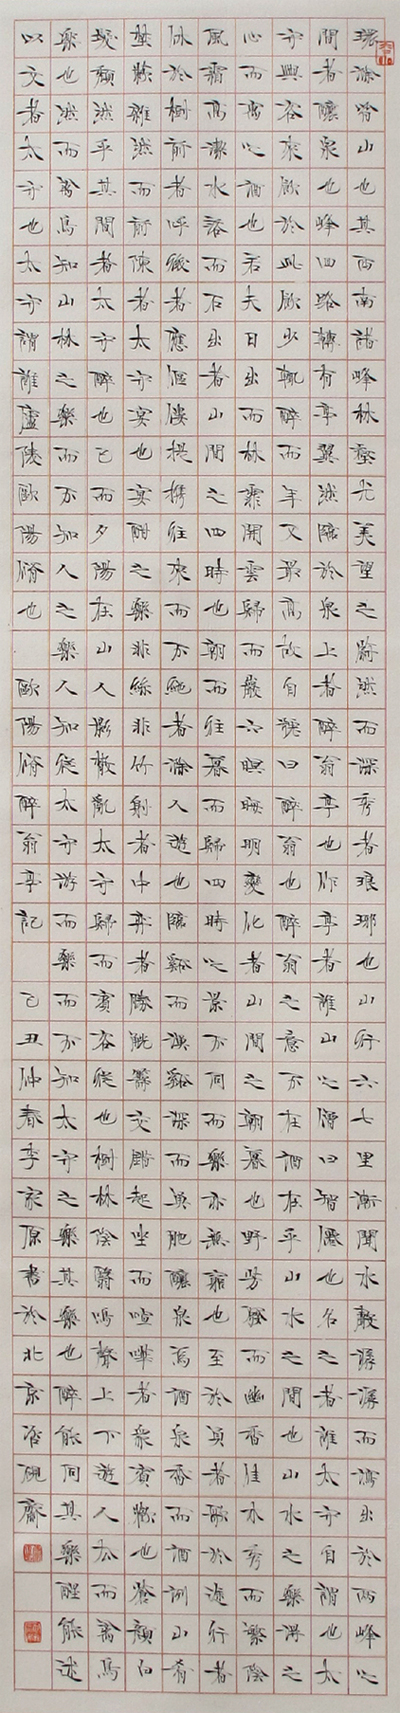 環滁皆山也其西南諸峰林壑尤美望之蔚然而深秀者琅琊也山行六七里漸聞水聲潺潺而瀉出於兩峰之
間者釀泉也峰回路轉有亭翼然臨於泉上者醉翁亭也作亭者誰山之僧曰智僊也名之者誰太守自謂也太
守與客來飲於此飲少輒醉而年又最高故自號曰醉翁也醉翁之意不在酒在乎山水之間也山水之樂得之
心而寓之酒也若夫日出而林霏開雲歸而巖穴暝晦明變化者山間之朝暮也野芳發而幽香佳木秀而繁陰
風霜高潔水落而石出者山間之四時也朝而往暮而歸四時之景不同而樂亦無窮也至於負者歌於途行者
休於樹前者呼後者應傴僂提攜往來而不絕者滁人遊也臨谿而漁谿深而魚肥釀泉為酒泉香而酒洌山肴
埜蔌雜然而前陳者太守宴也宴酣之樂非絲非竹射者中弈者勝觥籌交錯起坐而喧嘩者眾賓懽也蒼顏白
髮頹然乎其間者太守醉也已而夕陽在山人影散亂太守歸而賓客從也樹林陰翳鳴聲上下遊人去而禽鳥
樂也然而禽鳥知山林之樂而不知人之樂人知從太守游而樂而不知太守之樂其樂也醉能同其樂醒能述
以文者太守也太守謂誰廬陵歐陽脩也 歐陽脩醉翁亭記 己丑仲春李家原書於北京硯齋